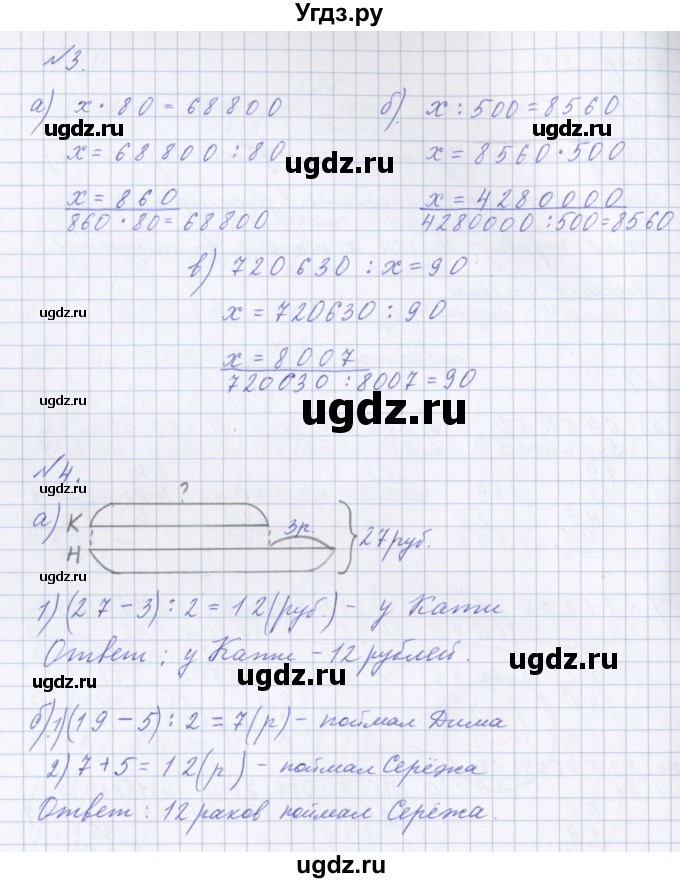 Угдз.ру
№3.
а) x · 80 = 68800
б) x : 500 = 8560
ugdz.ru ugdz.ru
x = 68800 : 80
x = 8560 · 500
ugdz.ru ugdz.ru
x = 860
x = 4280000
860 · 80 = 68800
4280000 : 500 = 8560
ugdz.ru ugdz.ru
в) 720630 : x = 90
ugdz.ru
x = 720630 : 90
x = 8007
720630 : 8007 = 90
ugdz.ru ugdz.ru
№4.
ugdz.ru
?
а) К
3р.
Н
27 руб.
1) (27 - 3) : 2 = 12 (руб.) - у Кати
ugdz.ru ugdz.ru
Ответ: у Кати - 12 рублей.
ugdz.ru ugdz.ru
б) 1) (19 - 5) : 2 = 7 (р) - поймал Дима
2) 7 + 5 = 12 (р.) - поймал Серёжа
ugdz.ru ugdz.ru
Ответ: 12 раков поймал Серёжа.
ugdz.ru